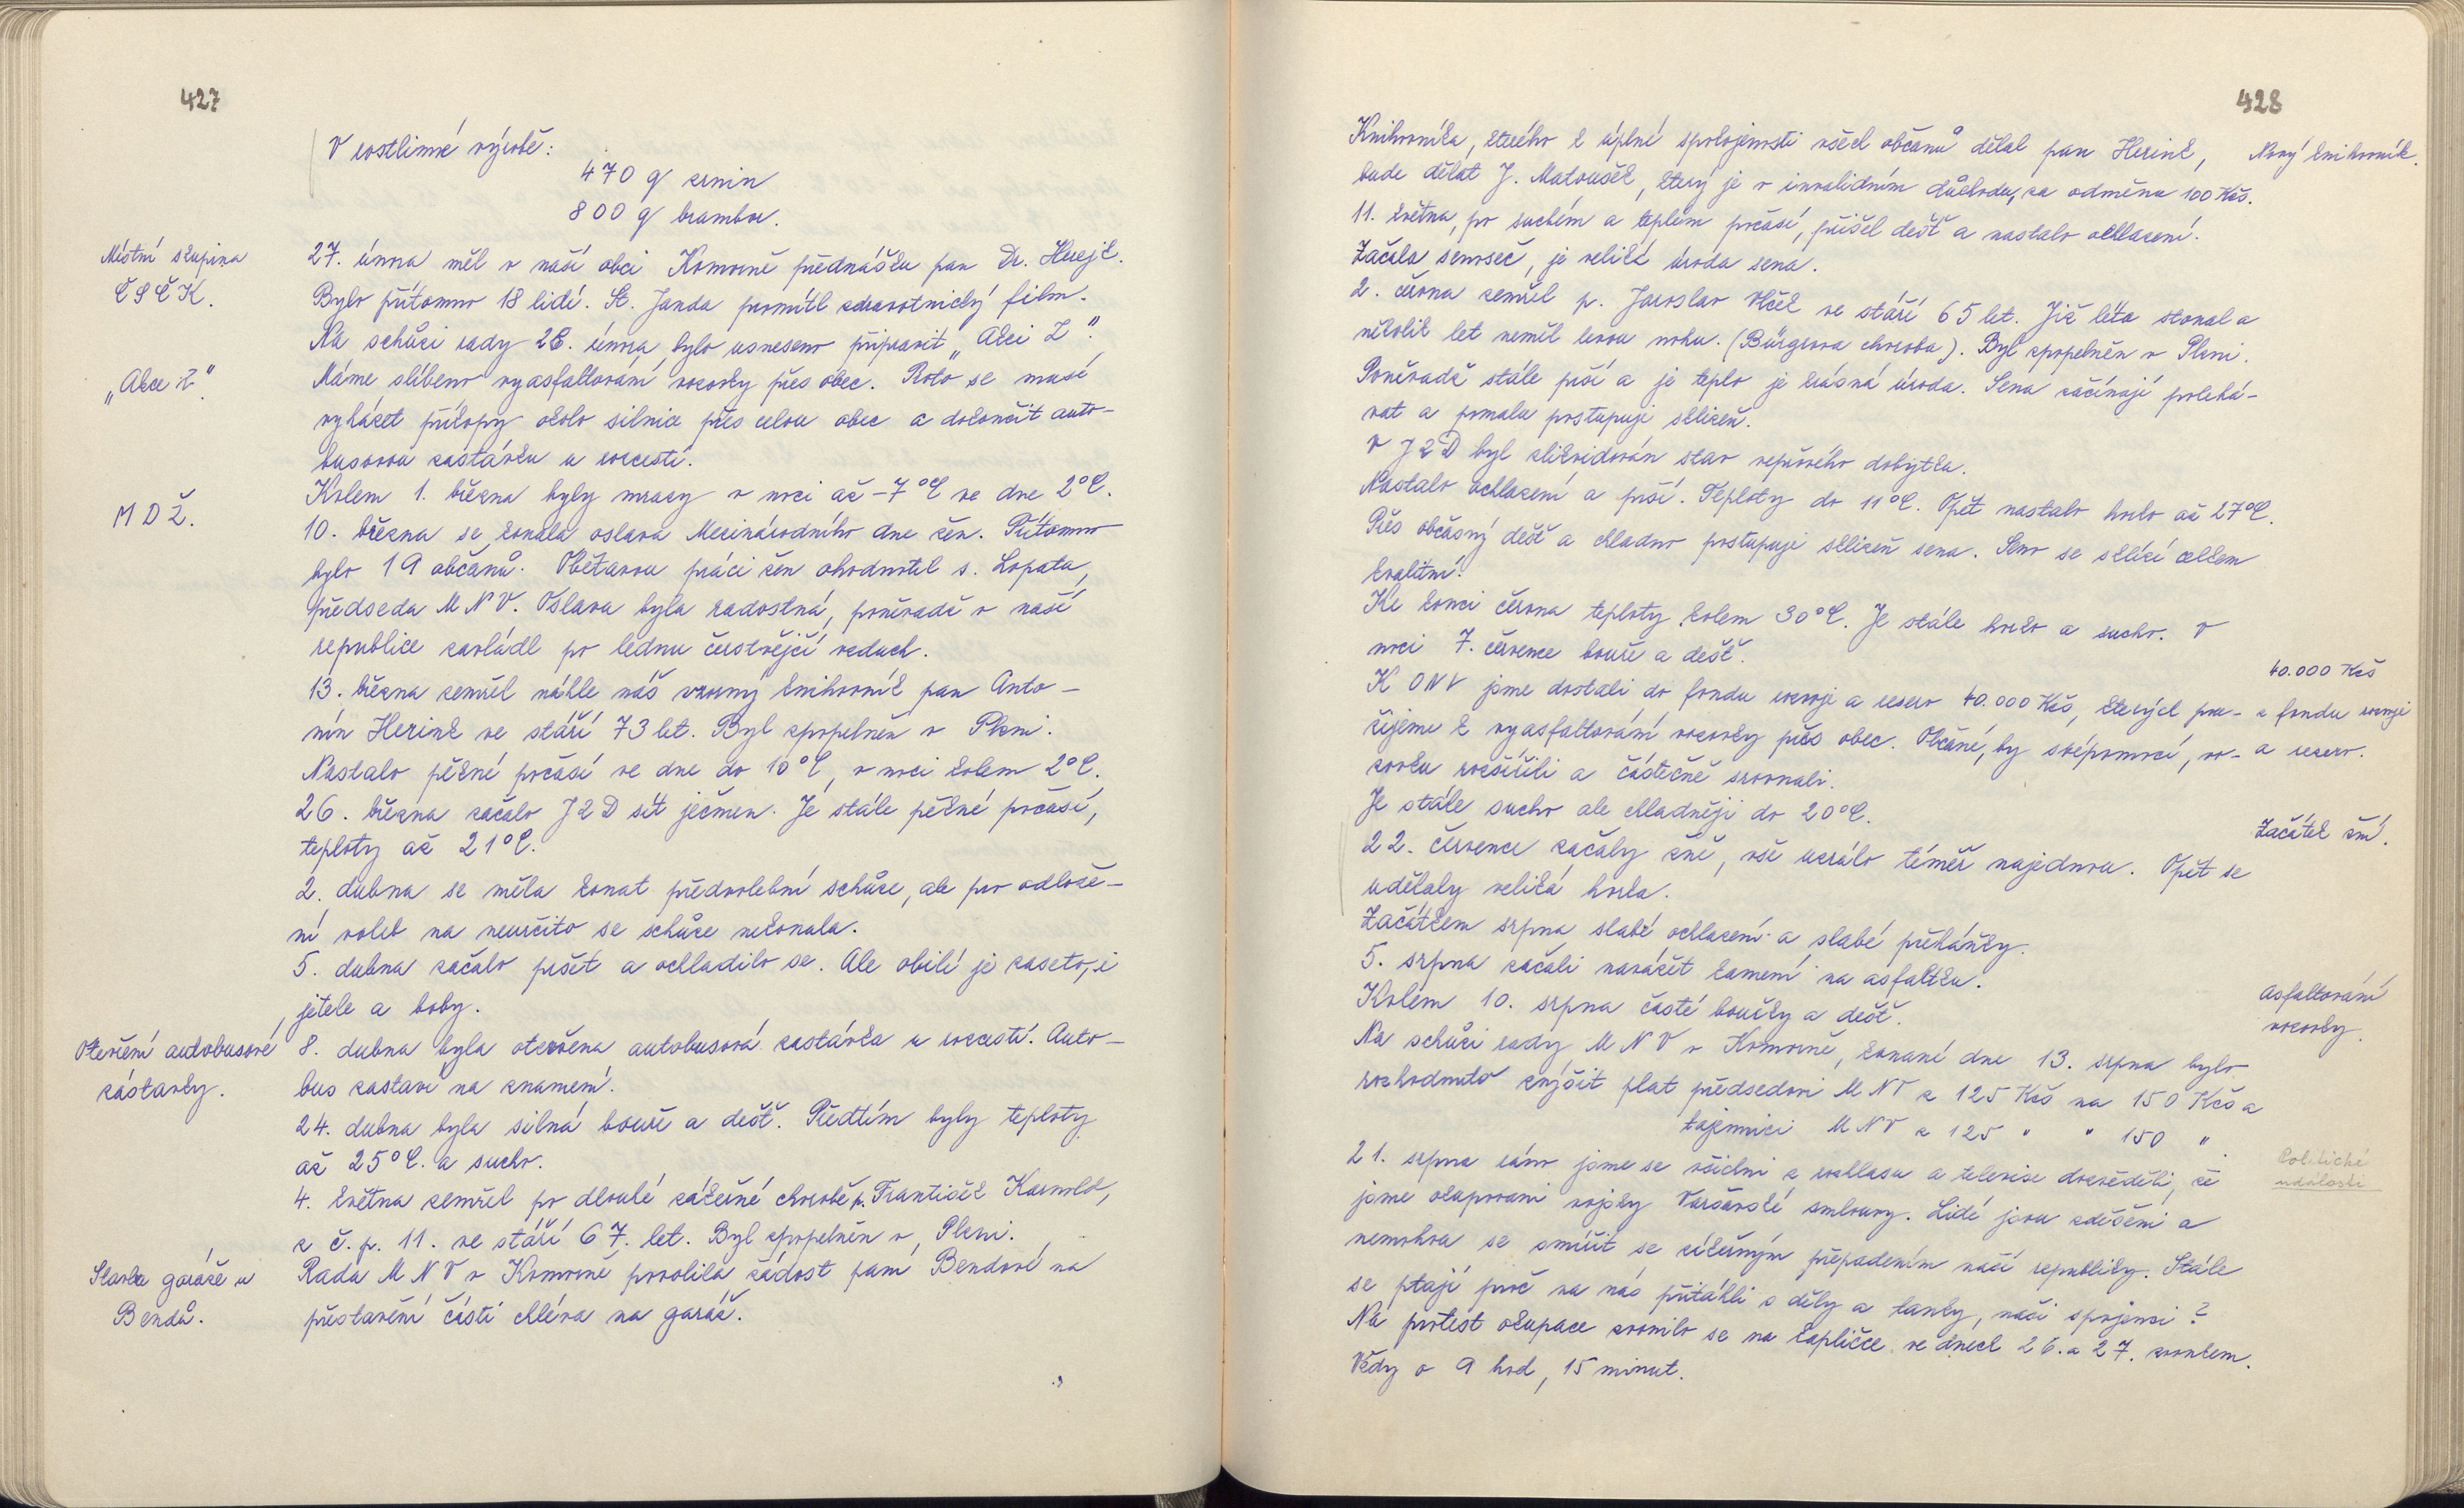 427
V rostlinné výrobě:
470 q zrnin
800 q brambor.
Místní skupina
ČSČK.
27. února měl v naší obci Komorně přednášku pan Dr. Hrejk.
Bylo přítomno 18 lidí. St. Janda promítl zdravotnický film.
Na schůzi rady 28. února bylo usneseno připravit „Akci Z".
„Akce Z".
Máme slíbeno vyasfaltování vozovky přes obec. Proto se musí
vyházet příkopy okolo silnice přes celou obec a dokončit auto-
busovou zastávku u rozcestí.
Kolem 1. března byly mrazy v noci až -7°C ve dne 2°C.
M D Ž.
10. března se konala oslava Mezinárodního dne žen. Přítomno
bylo 19 občanů. Obětavou práci žen ohodnotil s. Lopata,
předseda M N V. Oslava byla radostná, poněvadž v naší
republice zavládl po lednu čerstvější vzduch.
13. března zemřel náhle náš vzorný knihovník pan Anto-
nín Herink ve stáří 73 let. Byl zpopelněn v Plzni.
Nastalo pěkné počasí ve dne do 10°C, v noci kolem 2°C.
26. března začalo JZD sít ječmen. Je stále pěkné počasí,
teploty až 21°C.
2. dubna se měla konat předvolební schůze, ale pro odlože-
ní voleb na neurčito se schůze nekonala.
5. dubna začalo pršet a ochladilo se. Ale obilí je zaseto, i
jetele a boby.
Otevření autobusové
zastávky.
8. dubna byla otevřena autobusová zastávka u rozcestí. Auto-
bus zastaví na znamení.
24. dubna byla silná bouře a déšť. Předtím byly teploty
až 25°C. a sucho.
4. května zemřel po dlouhé zákeřné chorobě p. František Karnold,
z č.p. 11. ve stáří 67. let. Byl zpopelněn v Plzni.
Stavba garáže u
Bendů.
Rada M N V v Komorně povolila žádost paní Bendové na
přestavění částí chléva na garáž.
428
Knihovníka, kterého k úplné spokojenosti všech občanů dělal pan Herink,
Nový knihovník.
bude dělat J. Matoušek, který je v invalidním důchodu, za odměnu 100 Kčs.
11. května, po suchém a teplém počasí, přišel déšť a nastalo ochlazení.
Začala senoseč, je veliká úroda sena.
2. června zemřel p. Jaroslav Vlček ve stáří 65 let. Již léta stonal a
několik let neměl levou nohu. (Bürgrova choroba). Byl zpopelněn v Plzni.
Poněvadž stále prší a je teplo je krásná úroda. Sena začínají polehá-
vat a pomalu postupuje sklizeň.
V JZD byl zlikvidován stav vepřového dobytka.
Nastalo ochlazení a prší. Teploty do 11°C. Opět nastalo horko až 27°C.
Přes občasný déšť a chladno postupuje sklizeň sena. Seno se sklízí celkem
kvalitní.
Ke konci června teploty kolem 30°C. Je stále horko a sucho. V
noci 7. července bouře a déšť.
40.000 Kčs
z fondu rozvoje
a reserv.
K ONV jsme dostali do fondu rozvoje a reserv 40.000 Kčs, kterých pou-
žijeme k vyasfaltování vozovky přes obec. Občané, by svépomocí, vo-
zovku rozšířili a částečně srovnali.
Je stále sucho ale chladněji do 20°C.
Začátek žní.
22. července začaly žně, vše uzrálo téměř najednou. Opět se
udělaly veliká horka.
Začátkem srpna slabé ochlazení a slabé přeháňky.
5. srpna začali navážet kamení na asfaltku.
Asfaltování
vozovky.
Kolem 10. srpna časté bouřky a déšť.
Na schůzi rady M N V v Komorně, konané dne 13. srpna bylo
rozhodnuto zvýšit plat předsedovi M NV z 125 Kčs na 150 Kčs a
tajemnici M NV z 125 " " 150 "
Politické
události
21. srpna ráno jsme se všichni z rozhlasu a televise dozvěděli, že
jsme okupovani vojsky Varšavské smlouvy. Lidé jsou zděšeni a
nemohou se smířit se zákeřným přepadením naší republiky. Stále
se ptají proč na nás přitáhli s děly a tanky, naši spojenci?
Na protest okupace zvonilo se na kapličce ve dnech 26. a 27. zvonkem.
Vždy v 9 hod, 15 minut.